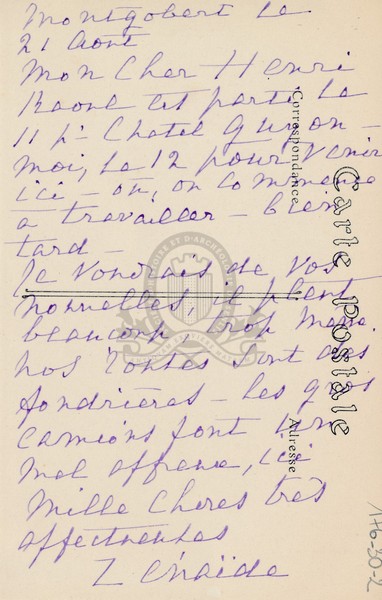 Montgobert Le
21 Août
Mon Cher Henri
Raoul est parti Le
11 pr Chatel Guyon -
Moi, Le 12 pour Venir
ici - où, on Commence
a travailler - bien
tard -
Je Voudrais de Vos
nouvelles, il pleut
beaucoup, trop même
nos routes sont des
fondrières - Les gros
Camions font un
Mal affreux, ici
Mille Choses très
affectueuses
Zénaïde
Carte Postale
Correspondance
Adresse
146-30-2